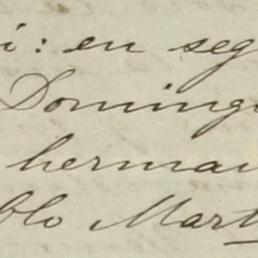 i: en seg
Doming
herma
blo Mart